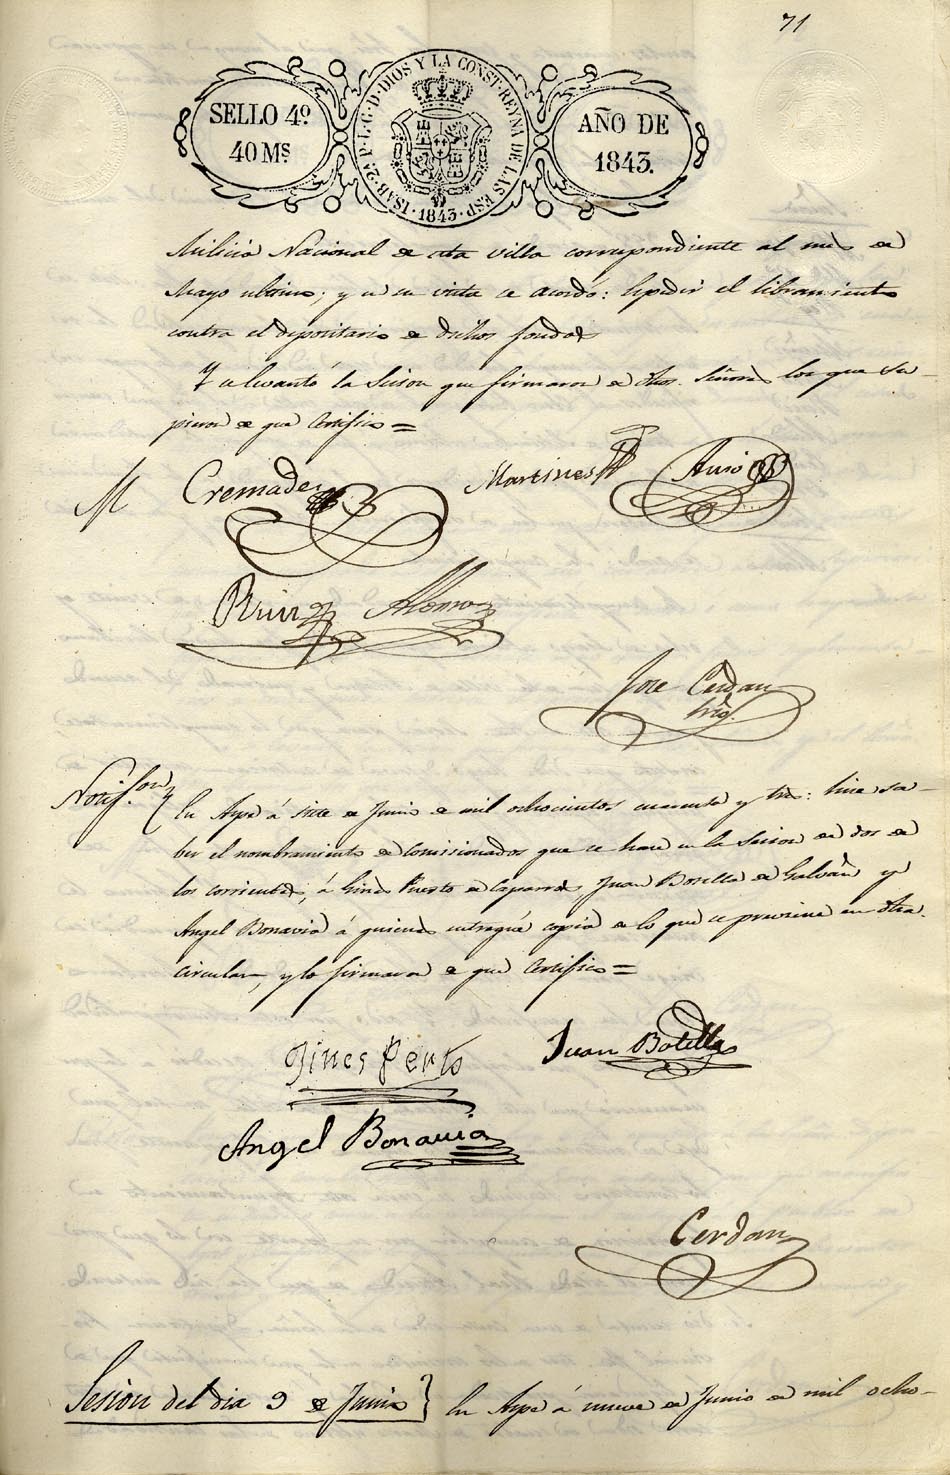 71
SELLO 4º
40 Ms
ISAB. 2ª P. L. G. D. DIOS Y LA CONST. REYNA DE LAS ESP.
1843
AÑO DE
1843.
Milicia Nacional de esta villa correspondiente al mes de
Mayo ultimo; y en su vista se acordó: Espedir el libramiento
contra el depositario de dichos fondos
Y se levantó la Sesion que firmaron de dhos. Señores los que su-
pieron de que Certifico =
M Cremades Martines
Ruiz Alonso
Jose Cerdan
Srio.
Notif.on
En Aspe á siete de Junio de mil ochocientos cuarenta y tres: hice sa-
ber el nombramiento de Comisionados que se hace en la Sesion de dos de
los corrientes, á Gines Puerto de Caparros, Juan Botella de Galvañ y
Angel Bonavia á quienes entregué copia de lo que se previene en dha.
circular, y lo firmaron de que Certifico =
Gines Perto Juan Botella
Angel Bonavia
Cerdan
Sesion del dia 9 de Junio } En Aspe á nueve de Junio de mil ocho-